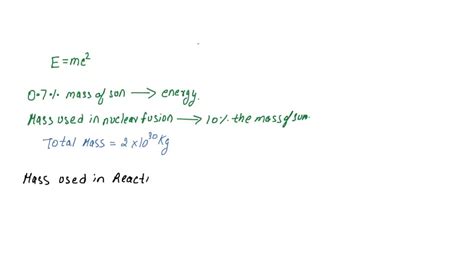 E = mc²
0.7% mass of son → energy.
Mass used in nuclear fusion → 10% the mass of sun.
Total Mass = 2×10³⁰ Kg
Mass used in Reacti